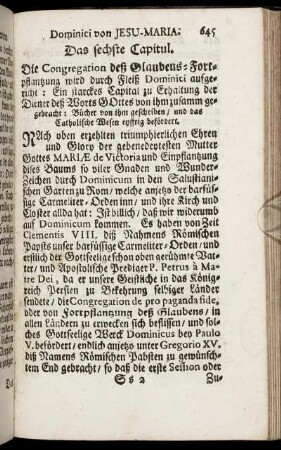 Dominici von JESU-MARIA: 645
Das sechste Capitul.
Die Congregation deß Glaubens-Fort-
pflantzung wird durch Fleiß Dominici aufge-
richt: Ein starckes Capital zu Erhaltung der
Diener deß Worts GOttes von ihm zusamm ge-
gebracht: Bücher von ihm geschriben, und das
Catholische Wesen eyfrig befördert.
NAch oben erzehlten triumphierlichen Ehren
und Glory der gebenedeytesten Mutter
Gottes MARIÆ de Victoria und Einpflantzung
dises Baums so viler Gnaden und Wunder-
Zeichen durch Dominicum in den Salustiani-
schen Garten zu Rom/ welche anjetzo der barfüs-
sige Carmeliter-Orden inn/ und ihre Kirch und
Closter allda hat: Ist billich/ daß wir widerumb
auf Dominicum kommen. Es haben von Zeit
Clementis VIII. diß Nahmens Römischen
Papsts unser barfüssige Carmeliter-Orden/ und
erstlich der Gottseelige schon oben gerühmte Vat-
ter/ und Apostolische Prediger P. Petrus à Ma-
tre Dei, da er unsere Geistliche in das König-
reich Persien zu Bekehrung selbiger Länder
sendete/ die Congregation de propaganda fide,
oder von Fortpflantzung deß Glaubens/ in
allen Ländern zu erwecken sich beflissen/ und sol-
ches Gottseelige Werck Dominicus bey Paulo
V. befördert/ endlich anjetzo unter Gregorio XV.
diß Namens Römischen Pabsten zu gewünsch-
tem End gebracht/ so daß die erste Session oder
Ss 2 Zu-